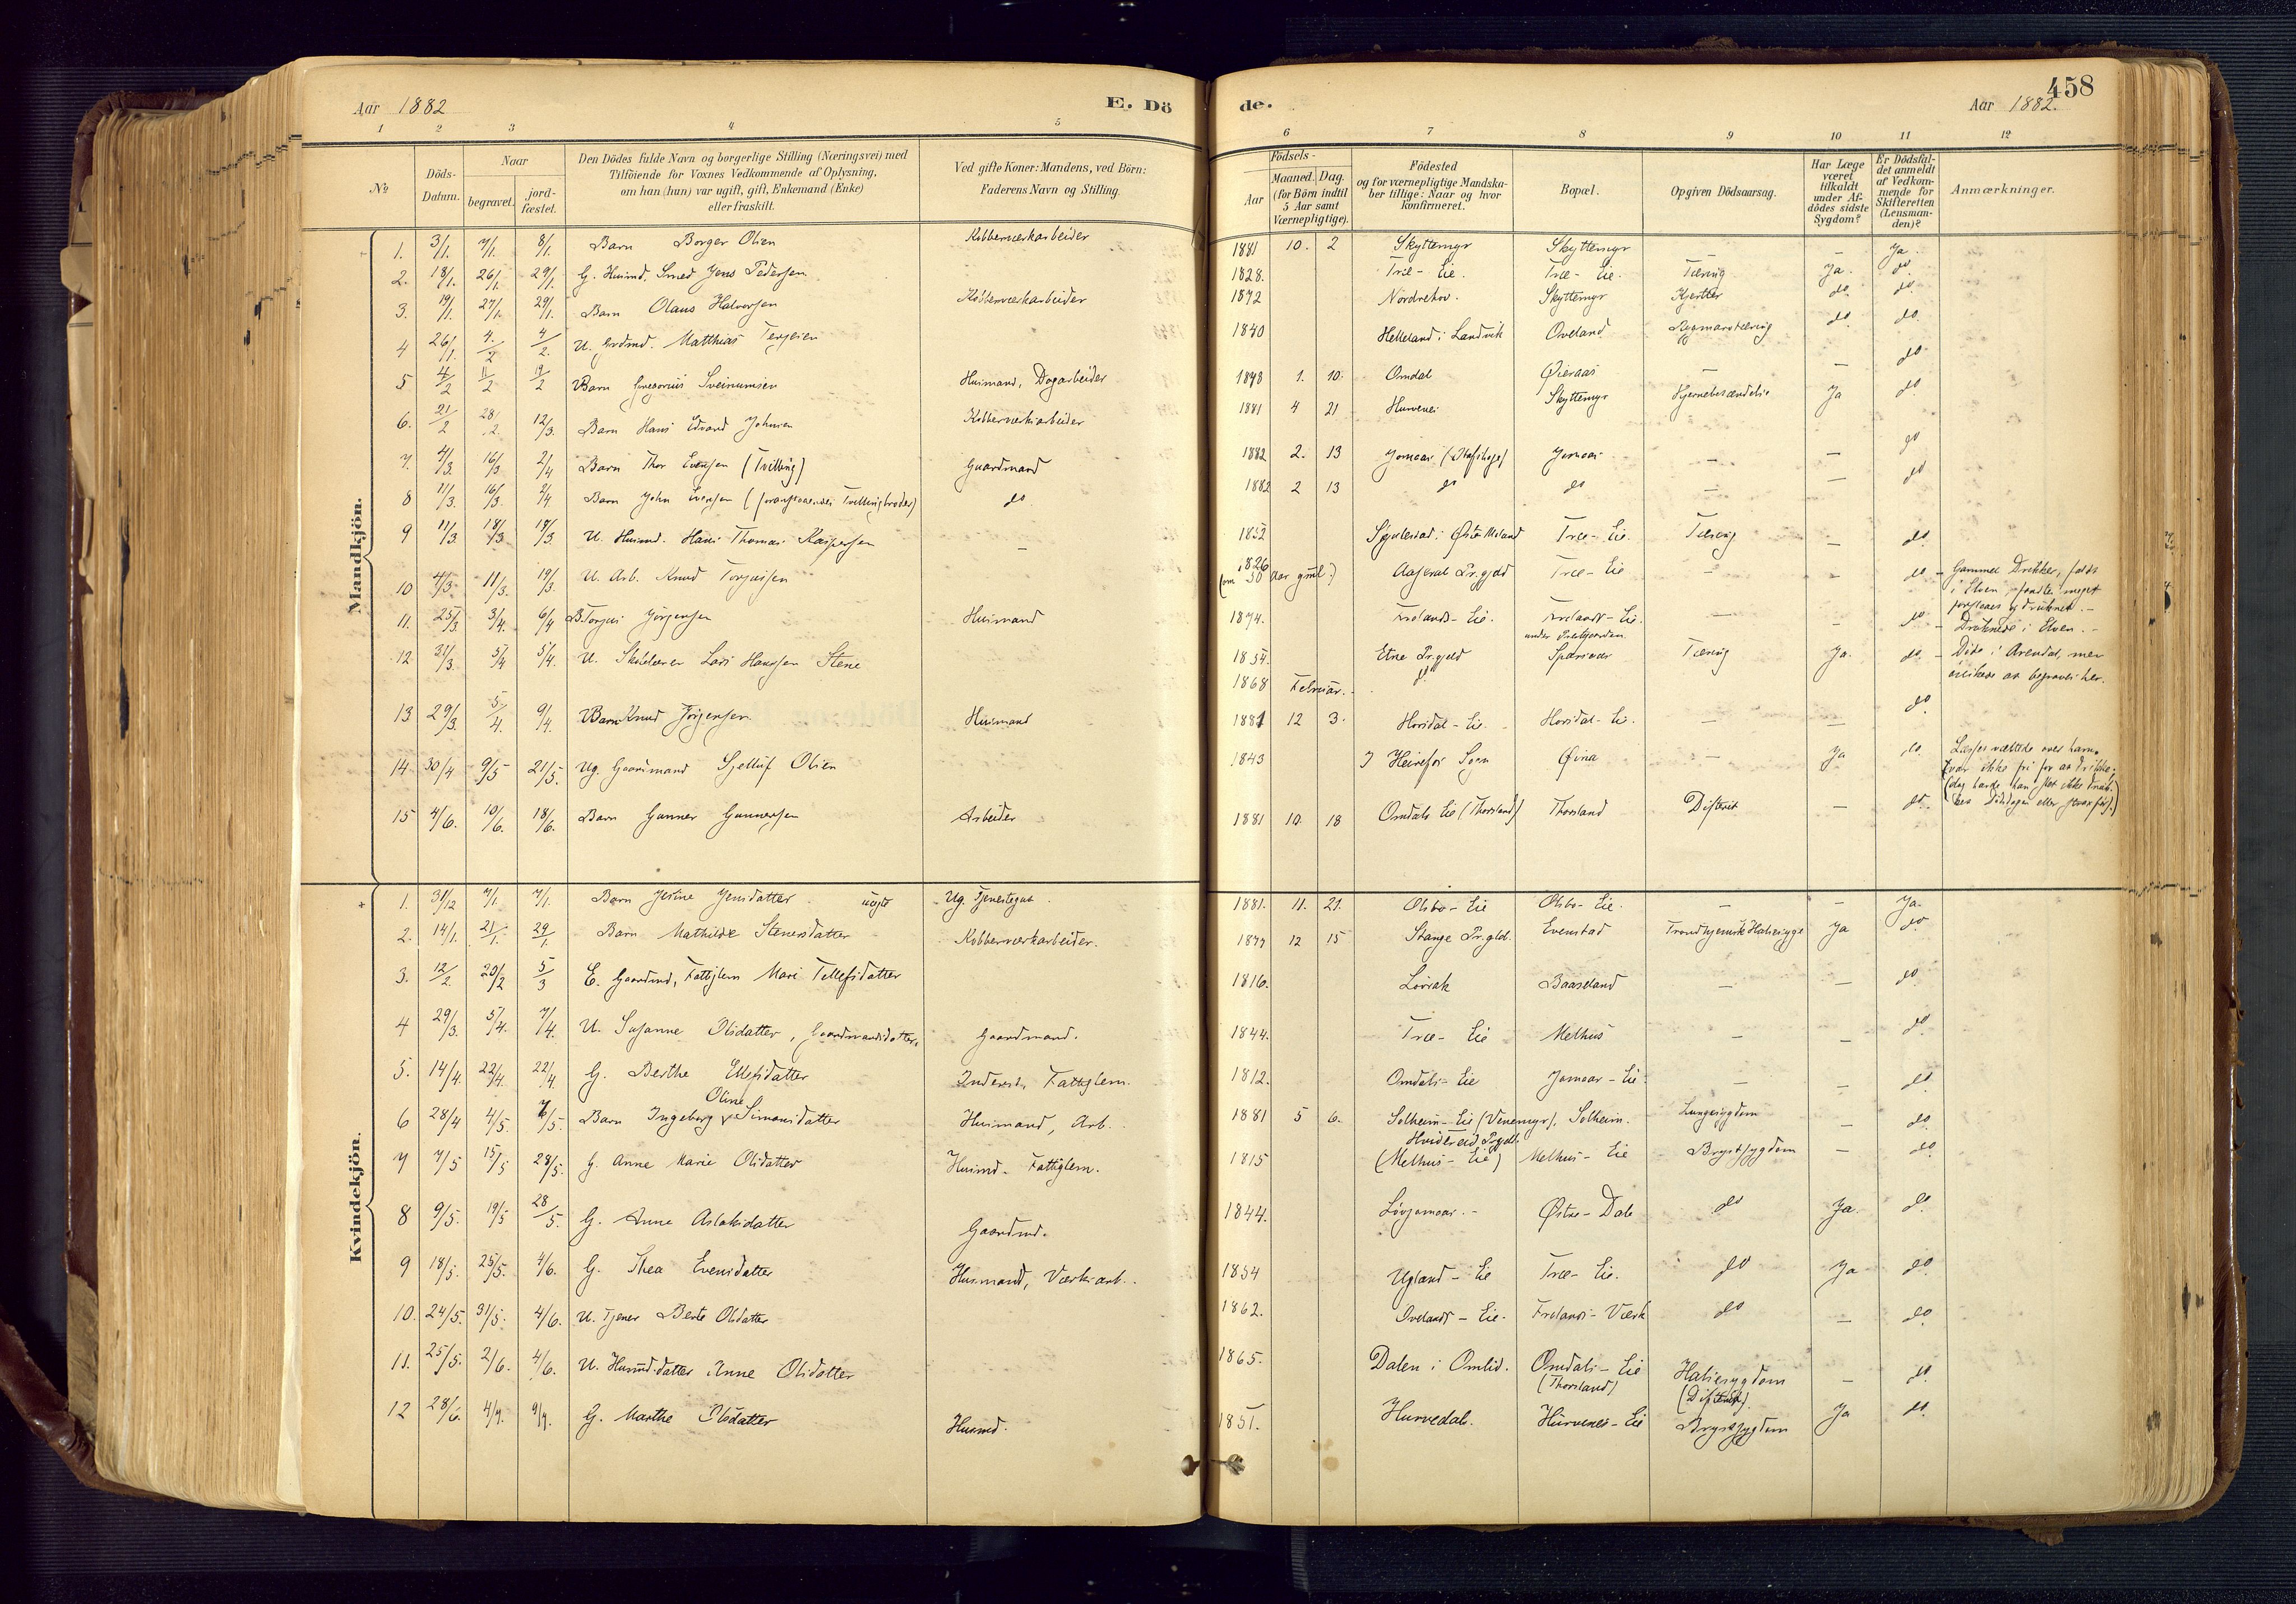 458
Aar 1882
E. Dö
de.
Aar 1882.
1 2 3 4 5
6 7 8 9 10 11 12
№
Döds-Datum.
Naar
begravet.
jord-fæstet.
Den Dödes fulde Navn og borgerlige Stilling (Næringsvei) med
Tilföiende for Voxnes Vedkommende af Oplysning,
om han (hun) var ugift, gift, Enkemand (Enke)
eller fraskilt.
Ved gifte Koner: Mandens, ved Börn:
Faderens Navn og Stilling.
Födsels-
Aar
Maaned. Dag.
(for Börn indtil
5 Aar samt
Værnepligtige).
Födested
og for værnepligtige Mandska-
ber tillige: Naar og hvor
konfirmeret.
Bopæl.
Opgiven Dödsaarsag.
Har Læge
været
tilkaldt
under Af-
dödes sidste
Sygdom?
Er Dödsfal-
det anmeldt
af Vedkom-
mende for
Skifteretten
(Lensman-
den)?
Anmærkninger.
Mandkjön.
1. 3/1. 7/1. 8/1. Barn Borger Olsen Kobberværkarbeider 1881 10. 2 Skyttemyr Skyttemyr — — Ja.
2. 18/1. 26/1. 29/1. G. Husmd. Smed Jens Pedersen 1828. Træ - Eie. Træ - Eie. Tæring Ja. do.
3. 19/1. 27/1. 29/1. Barn Olaus Halvorsen Kobberværkarbeider 1872 Nordrehov. Skyttemyr do. do.
4 26/1. 4/2 4/2. U. Grdmd. Matthias Terjesen 1840 Helleland i Landvik Oveland Rygmarvstæring do. do.
5 4/2 11/2 19/2 Barn Gregorius Sveinumsen Husmand, Dagarbeider 1878 1. 10. Omdal Øieraas — — do.
6. 21/2 28/2. 12/3. Barn Hans Edvard Johnsen Kobberværksarbeider 1881 4 21 Hurvenes Skyttemyr Hjernebetændelse Ja do.
7. 4/3. 16/3 2/4 Barn Thor Evensen (Tvilling) Gaardmand 1882 2. 13 Jomaas Jomaas — — do
8 11/3. 16/3. 2/4. Barn John Evensen (foranstaaendes Tvillingbroder) do 1882 2 13 do do — — do
9 11/3. 18/3. 19/3. U. Husmd. Hans Thomas Kaspersen — 1852 i Øiestad Træ - Eie Tæring — do.
10 4/3. 11/3. 19/3. U. Arb. Knud Torjussen 1826 (om 50 Aar gml:) Aaseral Pr.gjeld Træ - Eie — — do - Gammel Drikker, faldt
i Elven, fandtes meget
forslaaet og druknet. -
11. 25/3. 3/4. 6/4 B. Torjus Jørgensen Husmand 1874. Frolands - Eie. Frolands - Eie. — — do - Druknede i Elven. -
under Præstgaarden
12. 31/3. 5/4 5/4. U. Skolelærer Lars Hanssen Stene 1854. Etne Pr.gjeld Tæring Ja. do - Døde i Arendal, men
ønskede at begraves her.
1868 Februar. do
13 29/3. 5/4. 9/4. Barn Knud Jørgensen Husmand 1881 12 3. Horsdal - Eie. Horsdal - Eie. — — do
14. 30/4 9/5 21/5. Ug. Gaardmand Sjelluf Olsen 1843 I Heirefos Sogn Øina — Ja do. Læsset væltede over ham.
(var ikke fri for at drikke;
dog havde han slet ikke drukket
Dødsdagen eller før.)
15 4/6. 10/6. 18/6. Barn Gunner Gunnersen Arbeider 1881 10. 18 Omdals Eie (Thorsland) Thorsland Difterit — do.
Kvindekjön.
1. 31/12 7/1. 7/1. Barn Jesine Jensdatter uægte Ug. Tjenestegut. 1881. 11. 21. Olsbo - Eie Olsbo - Eie. — — Ja.
2. 14/1. 21/1. 29/1. Barn Mathilde Stenersdatter Kobberværkarbeider. 1877 12 15 Stange Pr.gld. Evenstad Trondhjemsk Halssyge Ja do.
3. 12/2. 20/2 5/3 E. Gaardmd, Fattiglem Mari Tellefsdatter 1816. Løvrak Baaseland — — do
4 29/3. 5/4. 7/4. U. Susanne Olsdatter, Gaardmandsdatter. Gaardmand. 1844. Træ - Eie Melhus — — do
5. 14/4. 22/4. 22/4. G. Berthe Ellefsdatter Inderst, Fattiglem. 1812. Omdals - Eie Jomaas - Eie. — — do
Oline
6 28/4 4/5. 7/5. Barn Ingeborg Simonsdatter Husmand, Arb. 1881 5 6. Solheim - Eie (Venemyr), Solheim. Lungesygdom — do.
Hvideseid Prgld.
7 7/5 15/5 28/5. G. Anne Marie Olsdatter Husmd. Fattiglem. 1815 (Melhus - Eie) Melhus - Eie Brystsygdom — do
8 9/5. 19/5 28/5. G. Anne Aslaksdatter Gaardmd. 1844. Løvjomaas. - Østre - Dale do Ja. do.
9 18/5. 25/5. 4/6. G. Thea Evensdatter Husmand, Værksarb. 1854 Ugland - Eie Træ - Eie. do Ja do
10. 24/5. 31/5. 4/6. U. Tjener Berte Olsdatter 1862. Ovelands - Eie. Frolands - Værk do — do.
11. 25/5. 2/6. 4/6. U. Husmd.datter Anne Olsdatter 1865. Dalen i Omlid. Omdals - Eie Halssygdom — do.
(Thorsland) (Difterit).
12 28/6. 4/7. 9/7. G. Marthe Olsdatter Husmd. 1851. Hurvedal. Hurvenes - Eie Brystsygdom Ja do.